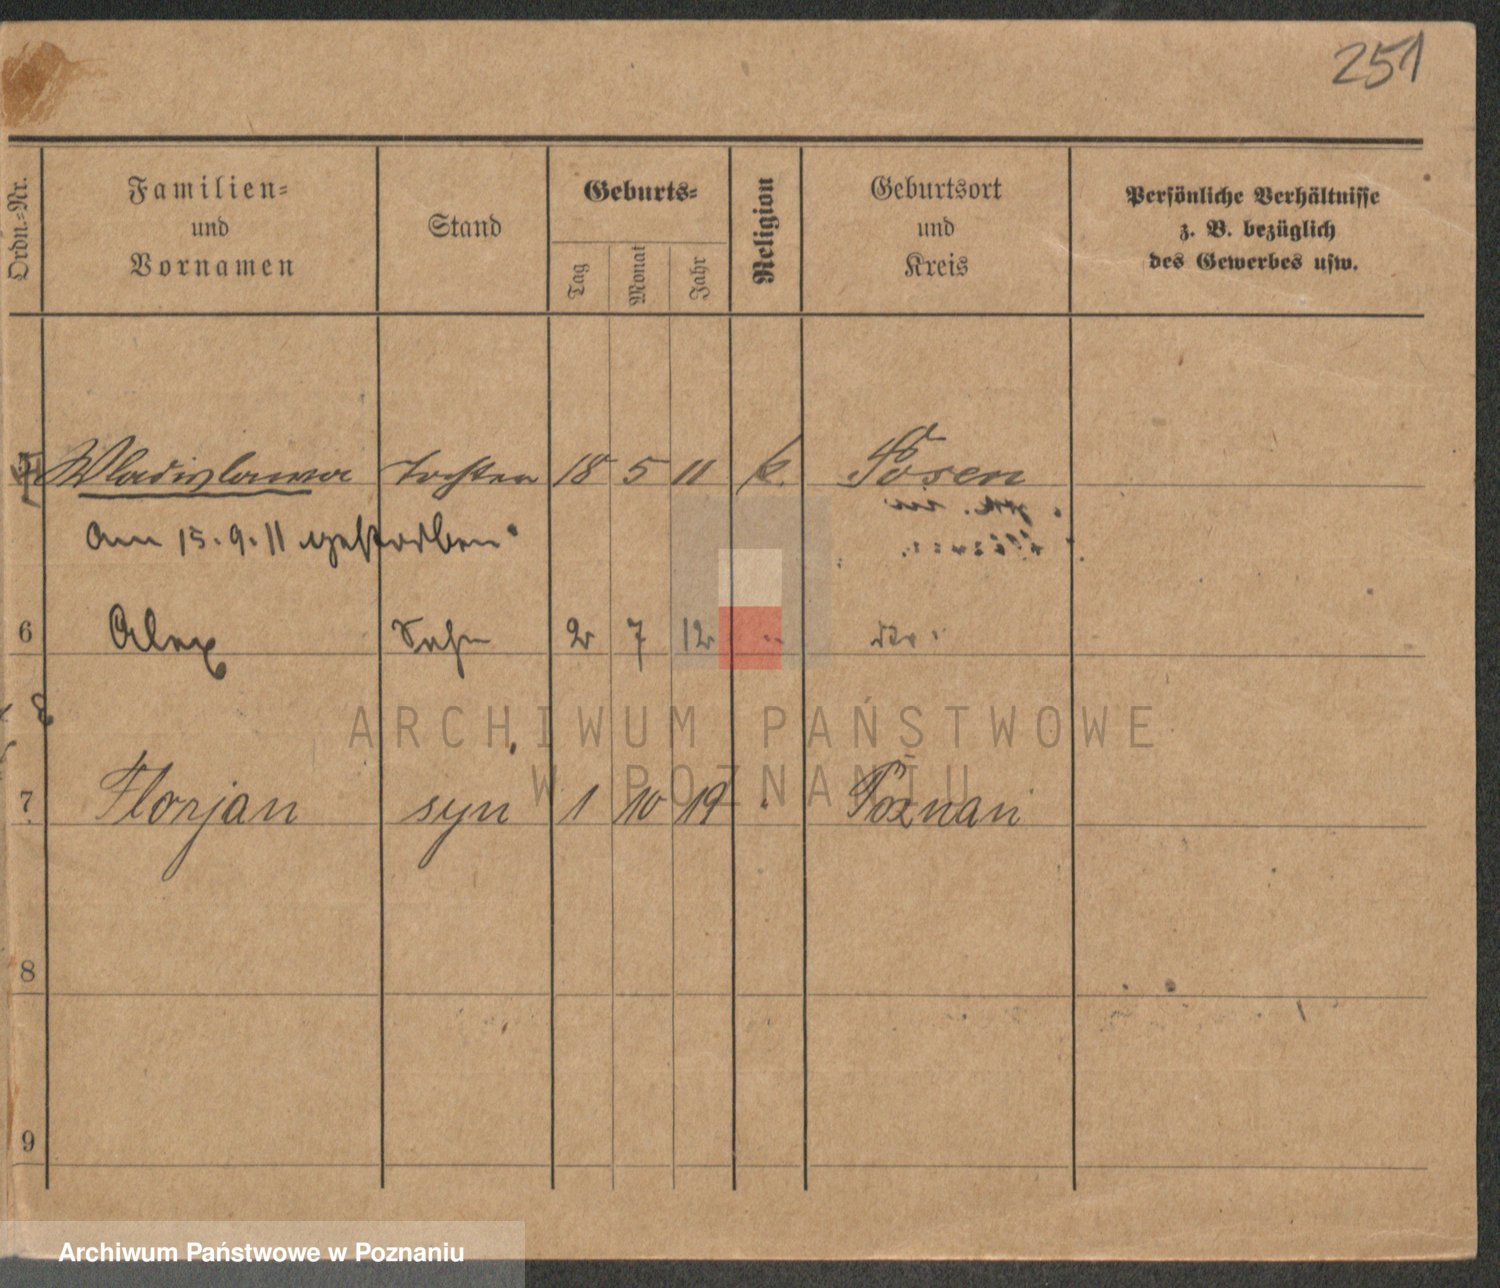 251
Ordn.=Nr.
Familien=
und
Vornamen
Stand
Geburts=
Tag
Monat
Jahr
Religion
Geburtsort
und
Kreis
Persönliche Verhältnisse
z. B. bezüglich
des Gewerbes usw.
5 Wladislawa Tochter 18 5 11 k. Posen
Am 15.9.11 gestorben
6 Alex Sohn 2 7 12 "
7 Florjan syn 1 10 19 Poznań
8
9
ARCHIWUM PAŃSTWOWE
W POZNANIU
Archiwum Państwowe w Poznaniu